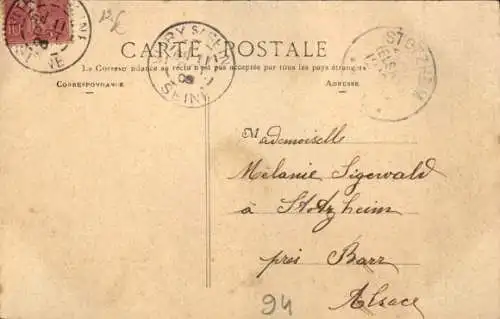 CARTE POSTALE
La Correspondance au recto n'est pas acceptée par tous les pays étrangers
CORRESPONDANCE
ADRESSE
IVRY S/SEINE
SEINE
STOTZHEIM
Mademoiselle
Mélanie Sigewald
à Stotzheim
près Barr
Alsace
94